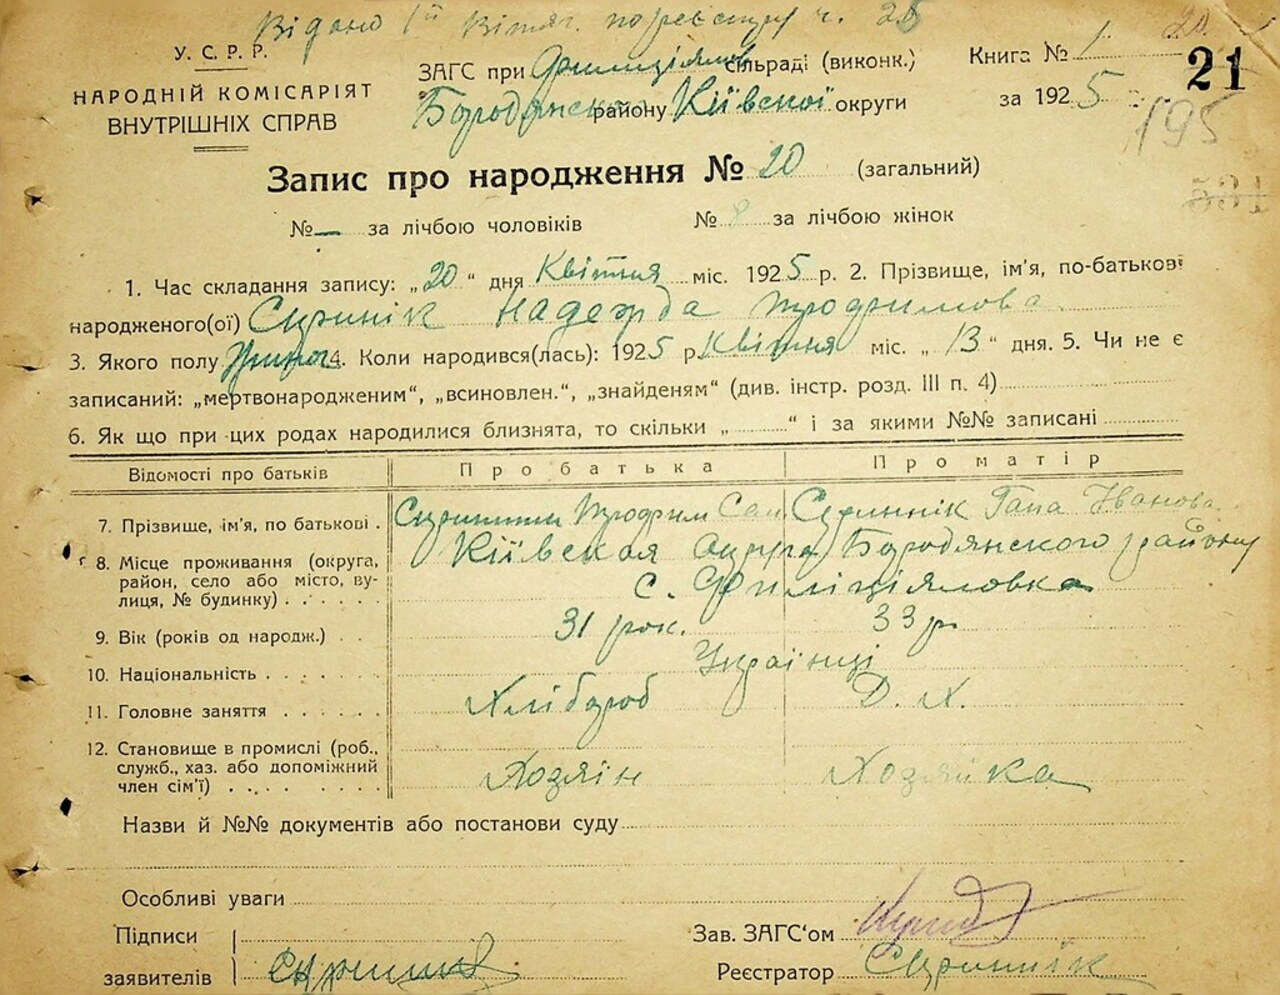 Видано 1ій Витяг. по реєстру ч. 28
У. С. Р. Р.
НАРОДНІЙ КОМІСАРІЯТ
ВНУТРІШНІХ СПРАВ
ЗАГС при Филиціялов сільраді (виконк.)
Бородянско району Київскої округи
Книга № 1
за 1925 р.
21
195
531
Запис про народження № 20 (загальний)
№ — за лічбою чоловіків № 8 за лічбою жінок
1. Час складання запису: „20“ дня Квітня міс. 1925 р. 2. Прізвище, ім'я, по-батькові
народженого(ої) Скринік Надежда Трофимова
3. Якого полу Жіноч 4. Коли народився(лась): 1925 р. Квітня міс. „13“ дня. 5. Чи не є
записаний: „мертвонародженим“, „всиновлен.“, „знайденям“ (див. інстр. розд. III п. 4)
6. Як що при цих родах народилися близнята, то скільки „ “ і за якими №№ записані
Відомості про батьків Про батька Про матір
7. Прізвище, ім'я, по батькові. Трофим Сам Скриннік Гапа Іванова
8. Місце проживання (округа, район, село або місто, вулиця, № будинку) Київская округа Бородянского району
с. Филиціяловка
9. Вік (років од народж.) 31 рок. 33 р.
10. Національність Українці
11. Головне заняття Хлібороб Д. Х.
12. Становище в промислі (роб., служб., хаз. або допоміжний член сім'ї) Хозяін Хозяйка
Назви й №№ документів або постанови суду
Особливі уваги
Підписи
заявителів
Зав. ЗАГС'ом
Реєстратор Скринник